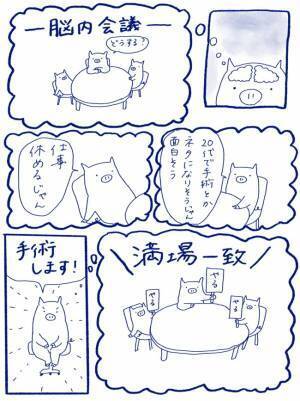 ―脳内会議―
どうする?
20代で手術とか
ネタになりそうじゃん
面白そう
仕事
休めるじゃん
\満場一致/
やる
やる
やる
手術
します!